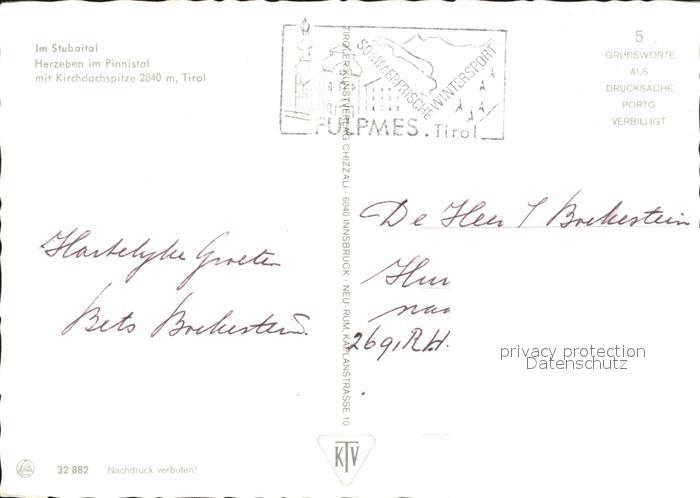 Im Stubaital
Herzeben im Pinnistal
mit Kirchdachspitze 2840 m, Tirol
SOMMERFRISCHE WINTERSPORT
FULPMES. Tirol
5
GRUSSWORTE
ALS
DRUCKSACHE
PORTO
VERBILLIGT
Hartelyke Groeten
Bets Boekestein.
TIROLER KUNSTVERLAG CHIZZALI · 6040 INNSBRUCK · NEU-RUM, KAPLANSTRASSE 10
De Heer J Boekestein
2691RH.
privacy protection
Datenschutz
KTV
32 882 Nachdruck verboten!